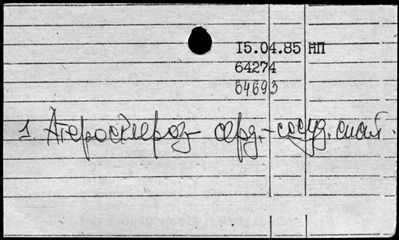 15.04.85 НП
64274
64693
1. Атеросклероз - серд.-сосуд. сист.